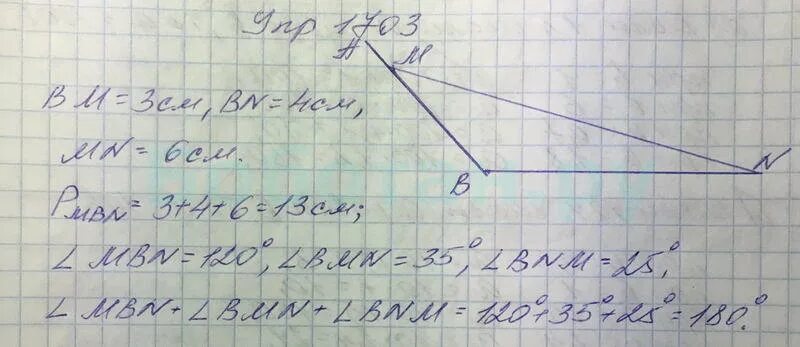 Упр 1703
A
M
BM = 3см, BN = 4см,
MN = 6 см.
B
N
P MBN = 3+4+6 = 13 см;
∠ MBN = 120°, ∠BMN = 35°, ∠BNM = 25°,
∠ MBN + ∠BMN + ∠BNM = 120° + 35° + 25° = 180°.